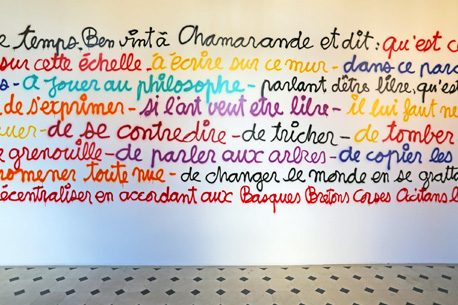 e temps. Ben vint à Chamarande et dit : qu'est c
sur cette échelle à écrire sur ce mur - dans ce parc
s - à jouer au philosophe - parlant d'être libre, qu'est
de s'exprimer - si l'art veut etre libre - il lui faut ne
uer - de se contredire - de tricher - de tomber
e grenouille - de parler aux arbres - de copier les
romener toute nue - de changer le monde en se gratta
écentraliser en accordant aux Basques Bretons Corses Occitans l